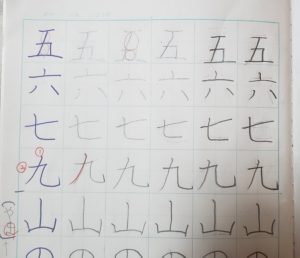 五 五 五 五 五 五
六 六 六 六 六 六
七 七 七 七 七 七
九 九 九 九 九 九
山 山 山 山 山 山